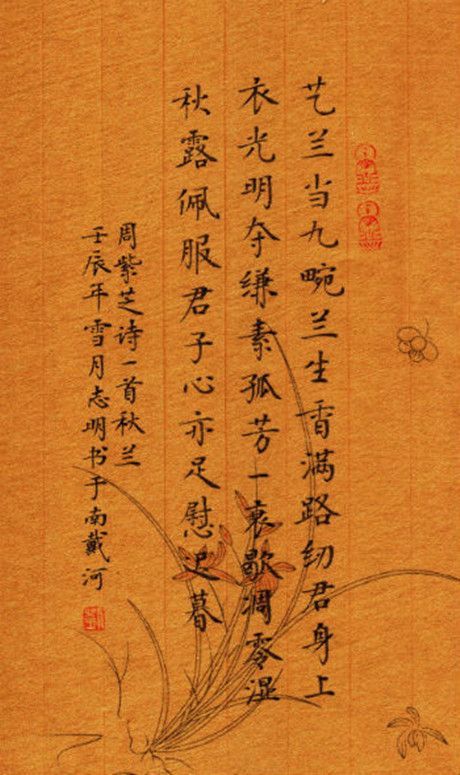 艺兰当九畹兰生香满路纫君身上
衣光明夺缣素孤芳一衰歇凋零湿
秋露佩服君子心亦足慰迟暮
周紫芝诗一首秋兰
壬辰年雪月志明书于南戴河